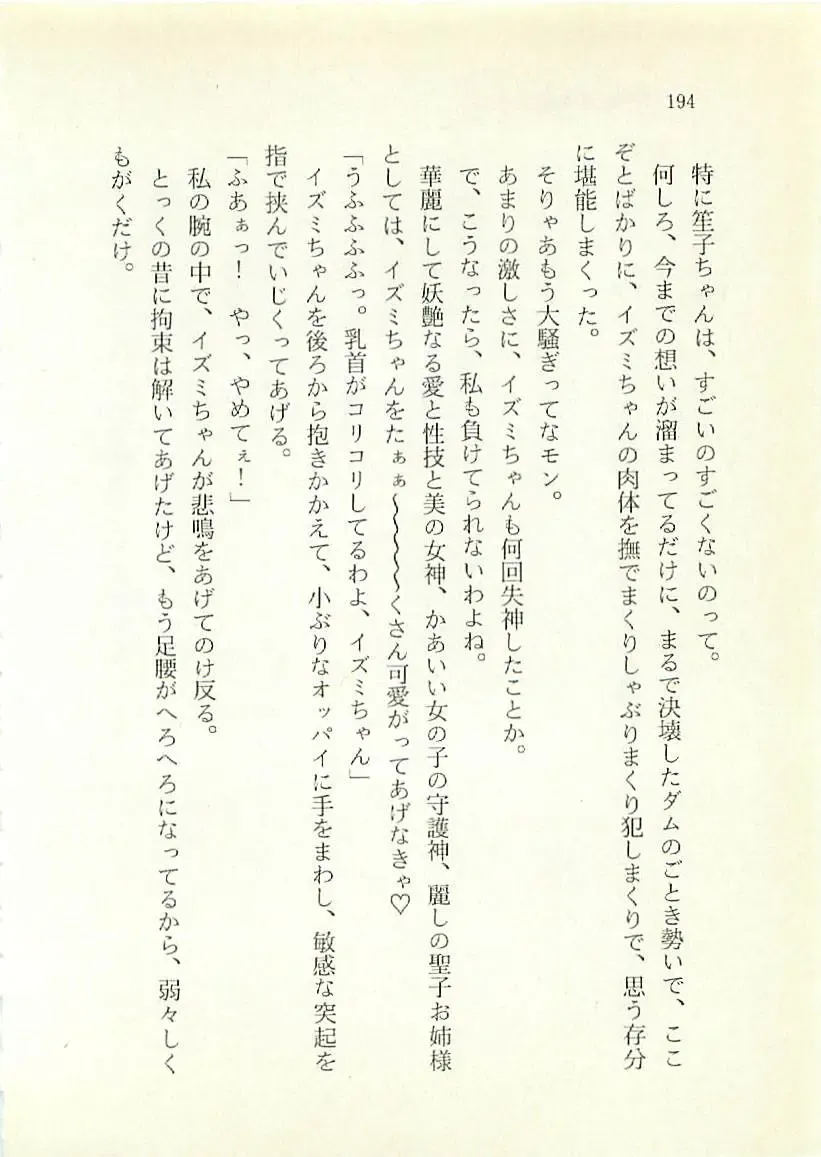 194
特に笙子ちゃんは、すごいのすごくないのって。
何しろ、今までの想いが溜まってるだけに、まるで決壊したダムのごとき勢いで、ここ
ぞとばかりに、イズミちゃんの肉体を撫でまくりしゃぶりまくり犯しまくりで、思う存分
に堪能しまくった。
そりゃあもう大騒ぎってなモン。
あまりの激しさに、イズミちゃんも何回失神したことか。
で、こうなったら、私も負けてられないわよね。
華麗にして妖艶なる愛と性技と美の女神、かあいい女の子の守護神、麗しの聖子お姉様
としては、イズミちゃんをたぁぁ〜〜〜〜〜くさん可愛がってあげなきゃ♡
「うふふふふっ。乳首がコリコリしてるわよ、イズミちゃん」
イズミちゃんを後ろから抱きかかえて、小ぶりなオッパイに手をまわし、敏感な突起を
指で挟んでいじくってあげる。
「ふあぁっ！　やっ、やめてぇ！」
私の腕の中で、イズミちゃんが悲鳴をあげてのけ反る。
とっくの昔に拘束は解いてあげたけど、もう足腰がへろへろになってるから、弱々しく
もがくだけ。